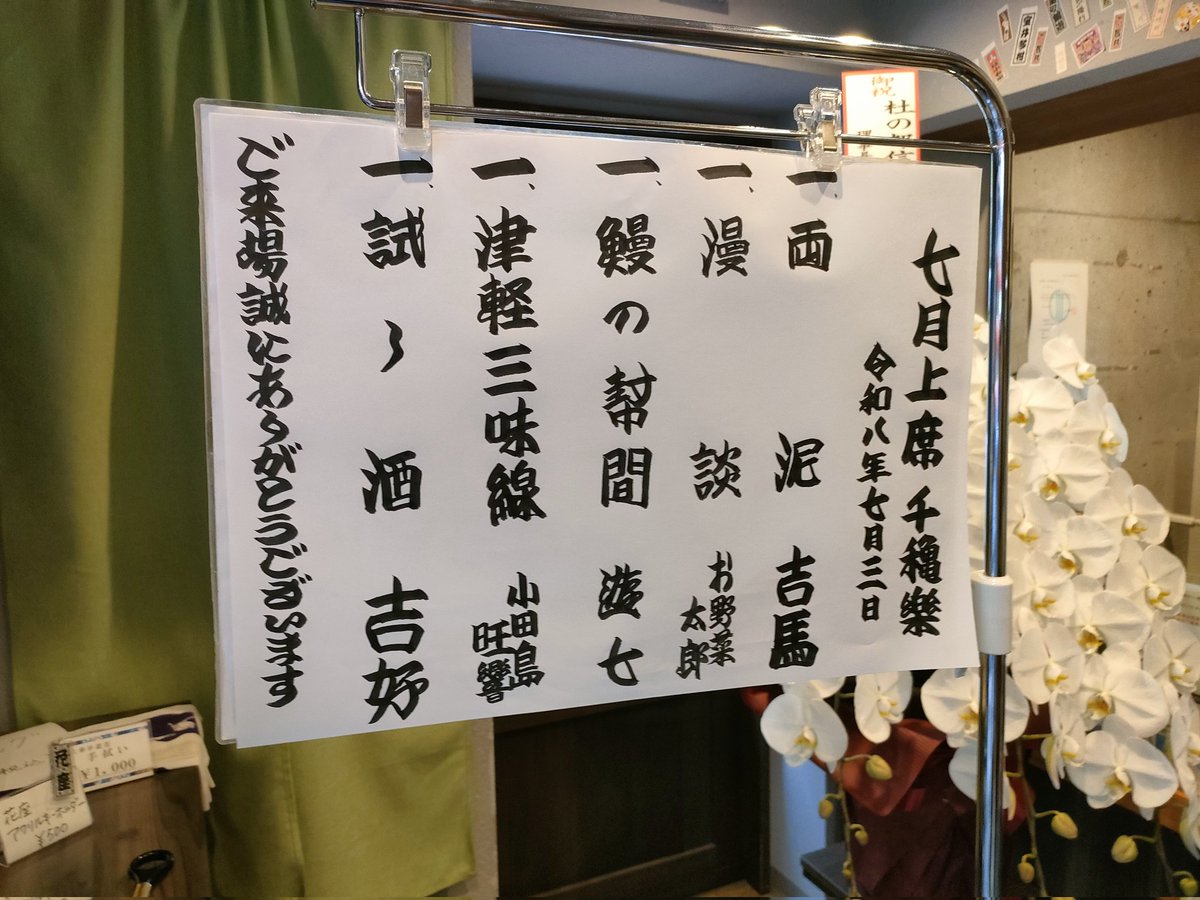 七月上席 千穐樂
令和八年七月三日
一、両泥 吉馬
一、漫談 お野菜太郎
一、鰻の幇間 遊七
一、津軽三味線 小田島旺響
一、試し酒 吉好
ご来場誠にありがとうございます
御祝
杜の
手拭い
¥1,000
花座
花座
アクリルキーホルダー
¥500